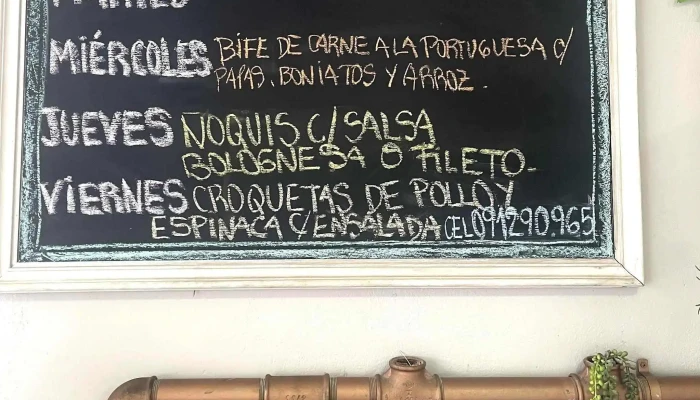 MARTES
MIÉRCOLES BIFE DE CARNE A LA PORTUGUESA C/
PAPAS, BONIATOS Y ARROZ.
JUEVES ÑOQUIS C/SALSA
BOLOGNESA O FILETO-
VIERNES CROQUETAS DE POLLO Y
ESPINACA C/ENSALADA CEL 091290.965